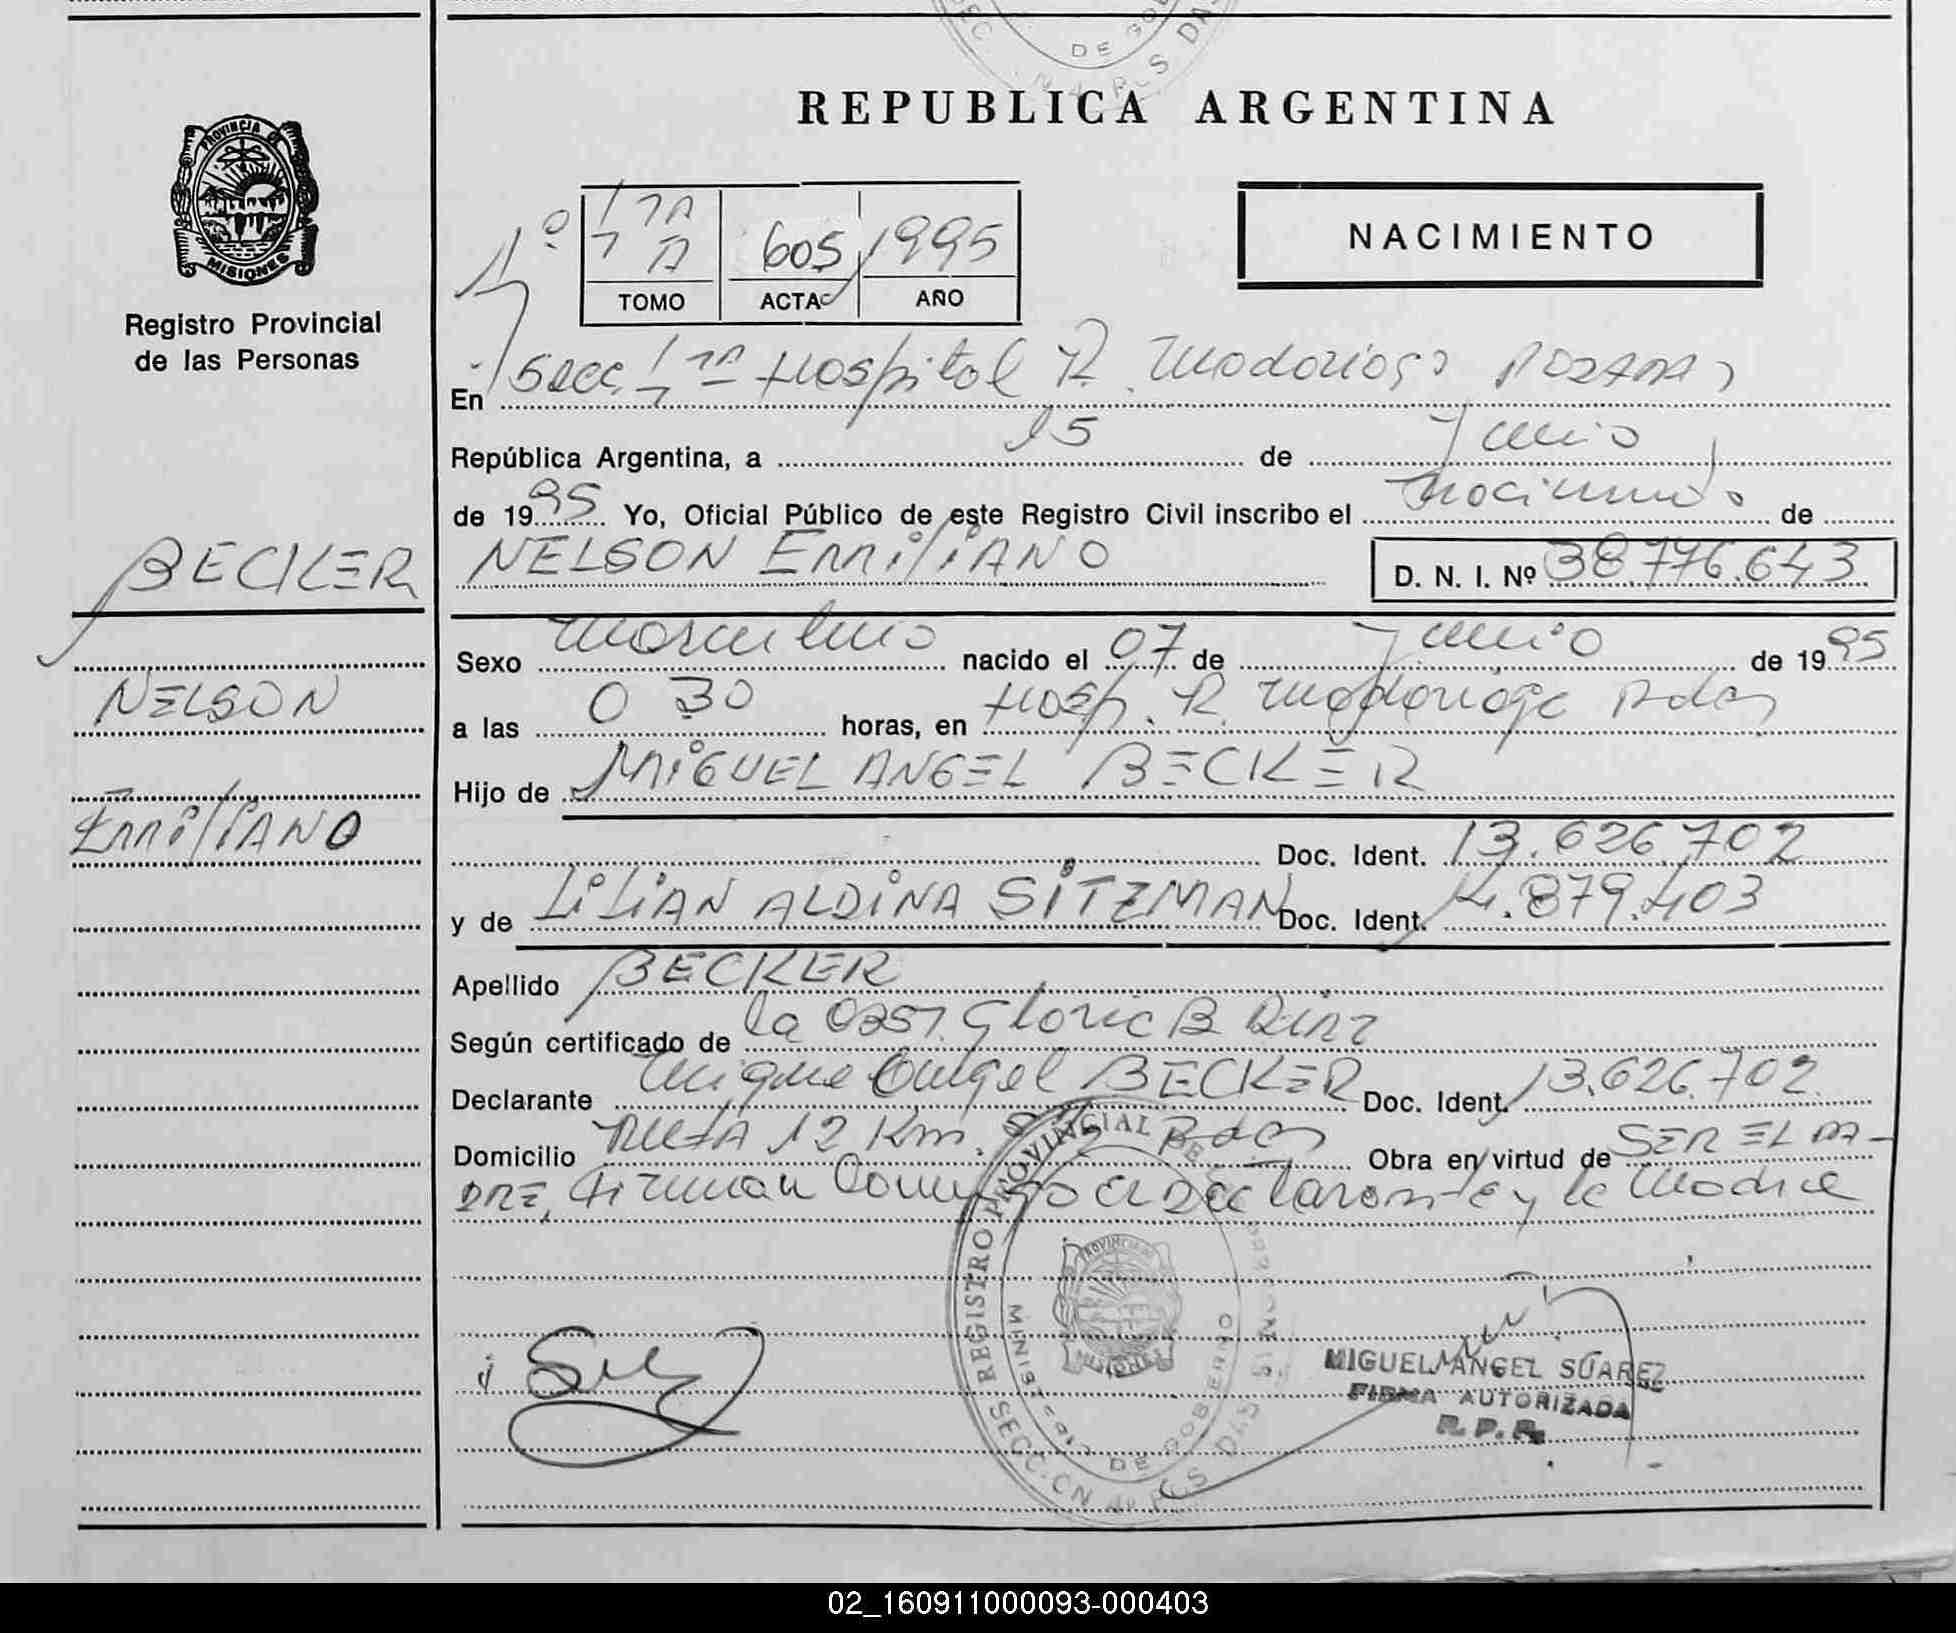 REPUBLICA ARGENTINA
PROVINCIA DE
MISIONES
Registro Provincial
de las Personas
1º
1ra A 605 1995
TOMO ACTA AÑO
NACIMIENTO
En Secc. 1ra Hospital R. Madariaga Posadas
República Argentina, a 15 de Junio
de 1995 Yo, Oficial Público de este Registro Civil inscribo el nacimiento de
NELSON EmiliANO D. N. I. Nº 38.776.643
BECKER
NELSON
EmiliANO
Sexo masculino nacido el 07 de Junio de 1995
a las 0 30 horas, en Hosp. R. Madariaga Pdas
Hijo de MIGUEL ANGEL BECKER
Doc. Ident. 13.626.702
y de LILIAN ALDINA SITZMAN Doc. Ident. 14.879.403
Apellido BECKER
Según certificado de la Obst. Gloria B
Declarante Miguel Angel BECKER Doc. Ident. 13.626.702
Domicilio RUTA 12 Km. Pdas Obra en virtud de SER EL PA-
DRE, Firman Conmigo el Declarante y la Madre
REGISTRO PROVINCIAL DE LAS PERSONAS
MINISTERIO DE GOBIERNO
MIGUEL ANGEL SUAREZ
FIRMA AUTORIZADA
R. P. P.
02_160911000093-000403